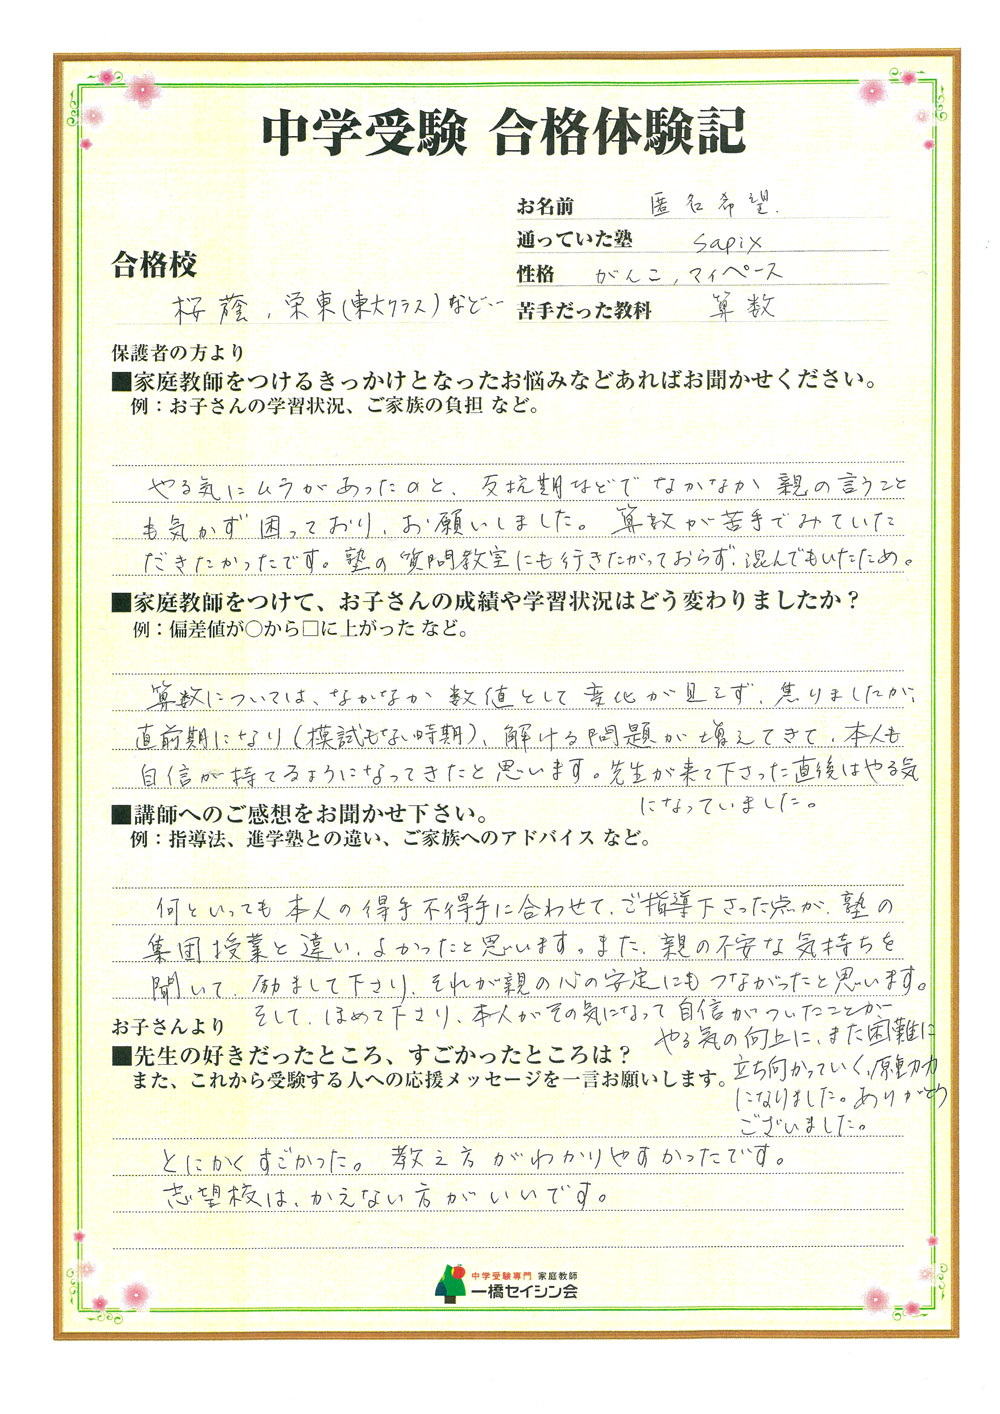 中学受験 合格体験記
お名前 匿名希望.
通っていた塾 sapix
合格校
性格 がんこ, マイペース
桜蔭, 栄東(東大クラス)など…
苦手だった教科 算数
保護者の方より
■家庭教師をつけるきっかけとなったお悩みなどあればお聞かせください。
例：お子さんの学習状況、ご家族の負担 など。
やる気にムラがあったのと、反抗期などでなかなか親の言うこと
も気かず困っており、お願いしました。算数が苦手でみていた
だきたかったです。塾の質問教室にも行きたがっておらず、混んでもいたため。
■家庭教師をつけて、お子さんの成績や学習状況はどう変わりましたか？
例：偏差値が○から□に上がった など。
算数については、なかなか数値として変化が見えず、焦りましたが、
直前期になり(模試もない時期)、解ける問題が増えてきて、本人も
自信が持てるようになってきたと思います。先生が来て下さった直後はやる気
になっていました。
■講師へのご感想をお聞かせ下さい。
例：指導法、進学塾との違い、ご家族へのアドバイス など。
何といっても本人の得手不得手に合わせて、ご指導下さった点が、塾の
集団授業と違い、よかったと思います。また、親の不安な気持ちを
聞いて、励まして下さり、それが親の心の安定にもつながったと思います。
そして、ほめて下さり、本人がその気になって自信がついたことが
やる気の向上に、また困難に
立ち向かっていく、原動力
になりました。ありがとう
ございました。
お子さんより
■先生の好きだったところ、すごかったところは？
また、これから受験する人への応援メッセージを一言お願いします。
とにかくすごかった。教え方がわかりやすかったです。
志望校は、かえない方がいいです。
中学受験専門 家庭教師
一橋セイシン会